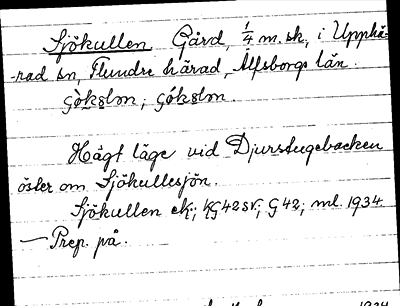 Sjökullen Gård, 1/4 m. sk, i Upphä-
-rad sn, Flundre härad, Älfsborgs län.
Högt läge vid Djurstugebacken
öster om Sjökullesjön.
Sjökullen ek; KG42SV; G42; ml. 1934.
— Prep. på.
1934